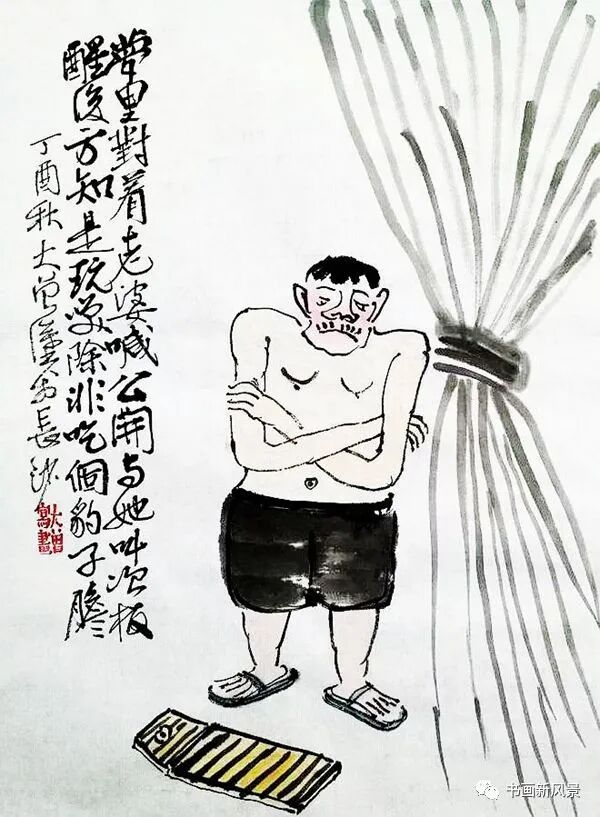 夢里對着老婆喊公開与她叫次板
醒後方知是玩笑除非吃個豹子膽
丁酉秋大曾 長沙
书画新风景